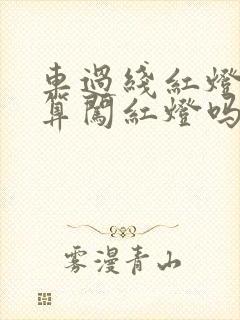 車過綫紅燈
算闖紅燈吗
雾漫青山